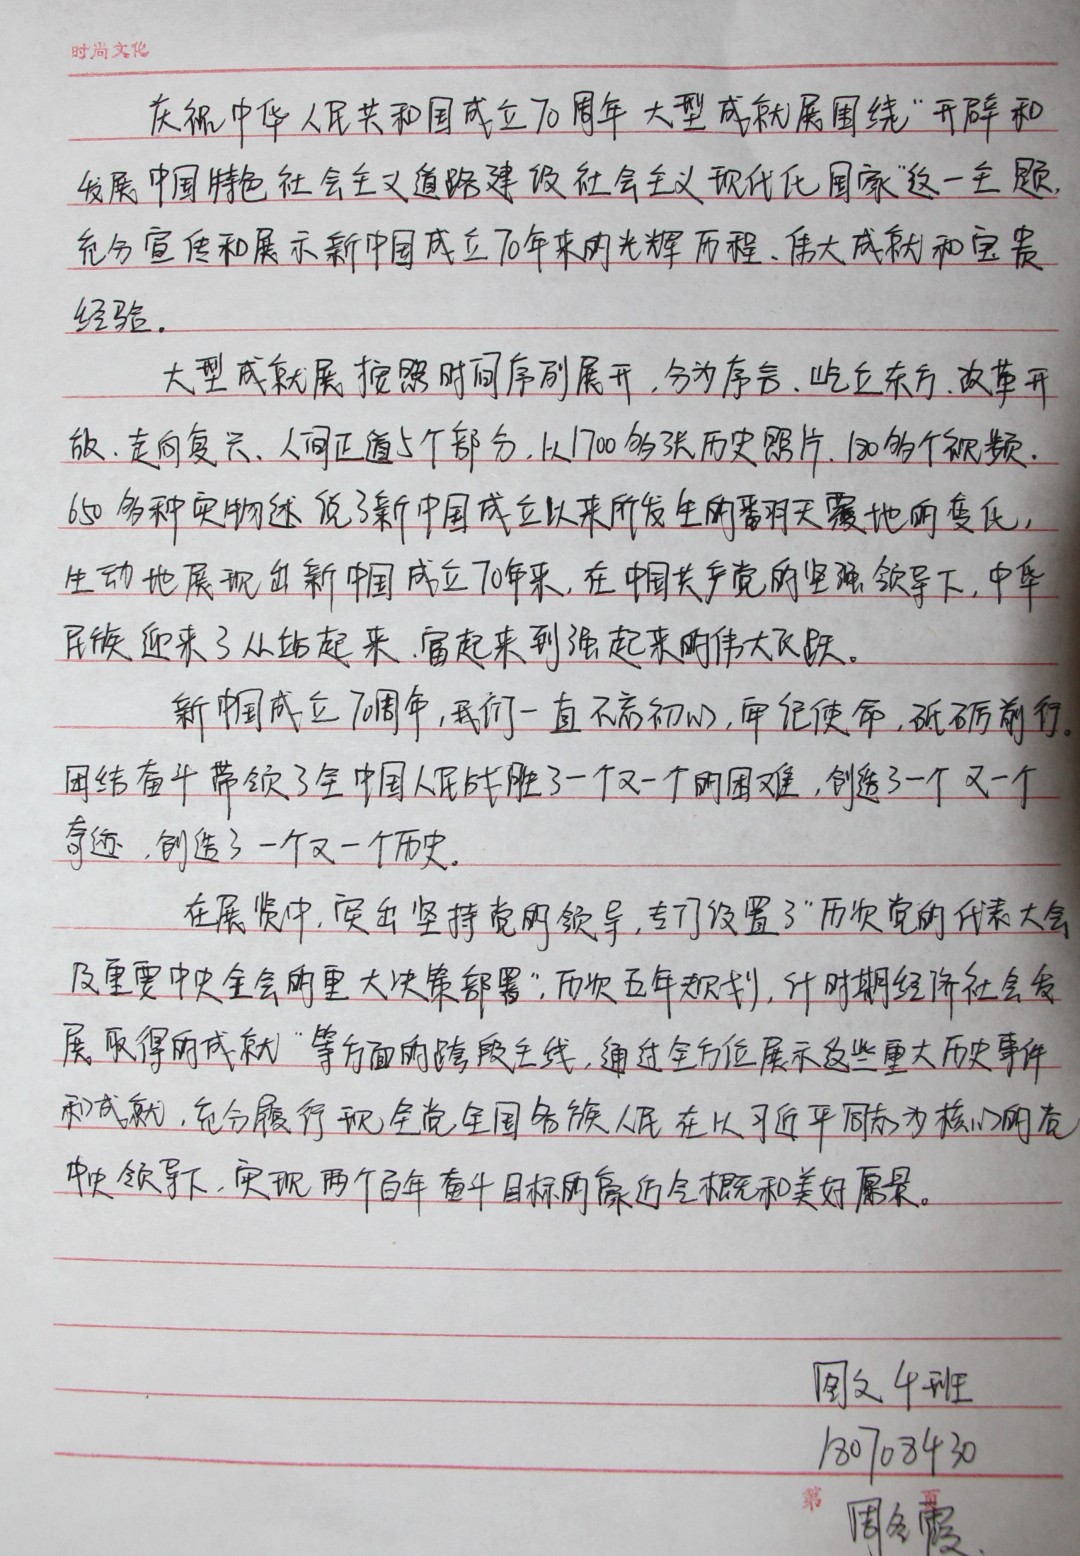 时尚文化
庆祝中华人民共和国成立70周年大型成就展围绕“开辟和
发展中国特色社会主义道路建设社会主义现代化国家”这一主题,
充分宣传和展示新中国成立70年来的光辉历程、伟大成就和宝贵
经验。
大型成就展按照时间序列展开,分为序言、屹立东方、改革开
放、走向复兴、人间正道5个部分,以1700多张历史照片、180多个视频、
650多种实物述说了新中国成立以来所发生的翻天覆地的变化,
生动地展现出新中国成立70年来,在中国共产党的坚强领导下,中华
民族迎来了从站起来、富起来到强起来的伟大飞跃。
新中国成立70周年,我们一直不忘初心,牢记使命,砥砺前行。
团结奋斗带领了全中国人民战胜了一个又一个的困难,创造了一个又一个
奇迹,创造了一个又一个历史。
在展览中,突出坚持党的领导,专门设置了“历次党的代表大会
及重要中央全会的重大决策部署”,历次五年规划,计时期经济社会发
展取得的成就”等方面的跨段主线,通过全方位展示这些重大历史事件
和成就,充分履行现全党全国各族人民在以习近平同志为核心的党
中央领导下,实现两个百年奋斗目标的豪迈全概和美好愿景。
图文4班
180708430
第 页
周冬霞